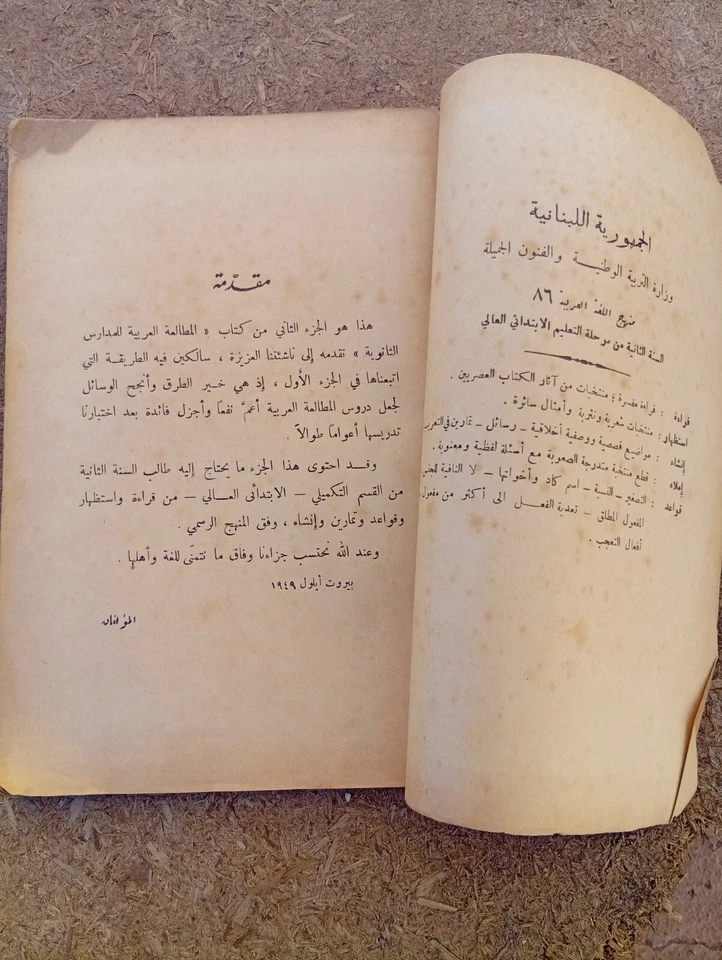 الجمهورية اللبنانية
وزارة التربية الوطنية والفنون الجميلة
منهج اللغة العربية ٨٦
السنة الثانية من مرحلة التعليم الابتدائي العالي
قراءة : قراءة مفسرة ؛ منتخبات من آثار الكتاب العصريين .
استظهار : منتخبات شعرية ونثرية وأمثال سائرة .
إنشاء : مواضيع قصصية ووصفية أخلاقية – رسائل – تمارين في التعريب
إملاء : قطع منتخبة متدرجة الصعوبة مع أسئلة لفظية ومعنوية .
قواعد : التصغير – النسبة – اسم كاد وأخواتها – لا النافية للجنس
المفعول المطلق – تعدية الفعل الى أكثر من مفعول
أفعال التعجب .
مقدّمة
هذا هو الجزء الثاني من كتاب « المطالعة العربية للمدارس
الثانوية » نقدمه إلى ناشئتنا العزيزة ، سالكين فيه الطريقة التي
اتبعناها في الجزء الأول ، إذ هي خير الطرق وأنجح الوسائل
لجعل دروس المطالعة العربية أعمَّ نفعاً وأجزل فائدة بعد اختبارنا
تدريسها أعواماً طوالاً .
وقد احتوى هذا الجزء ما يحتاج إليه طالب السنة الثانية
من القسم التكميلي – الابتدائى العالي – من قراءة واستظهار
وقواعد وتمارين وإنشاء ، وفق المنهج الرسمي .
وعند الله نحتسب جزاءنا وفاق ما نتمنّى للغة وأهلها .
بيروت أيلول ١٩٤٩
المؤلفان